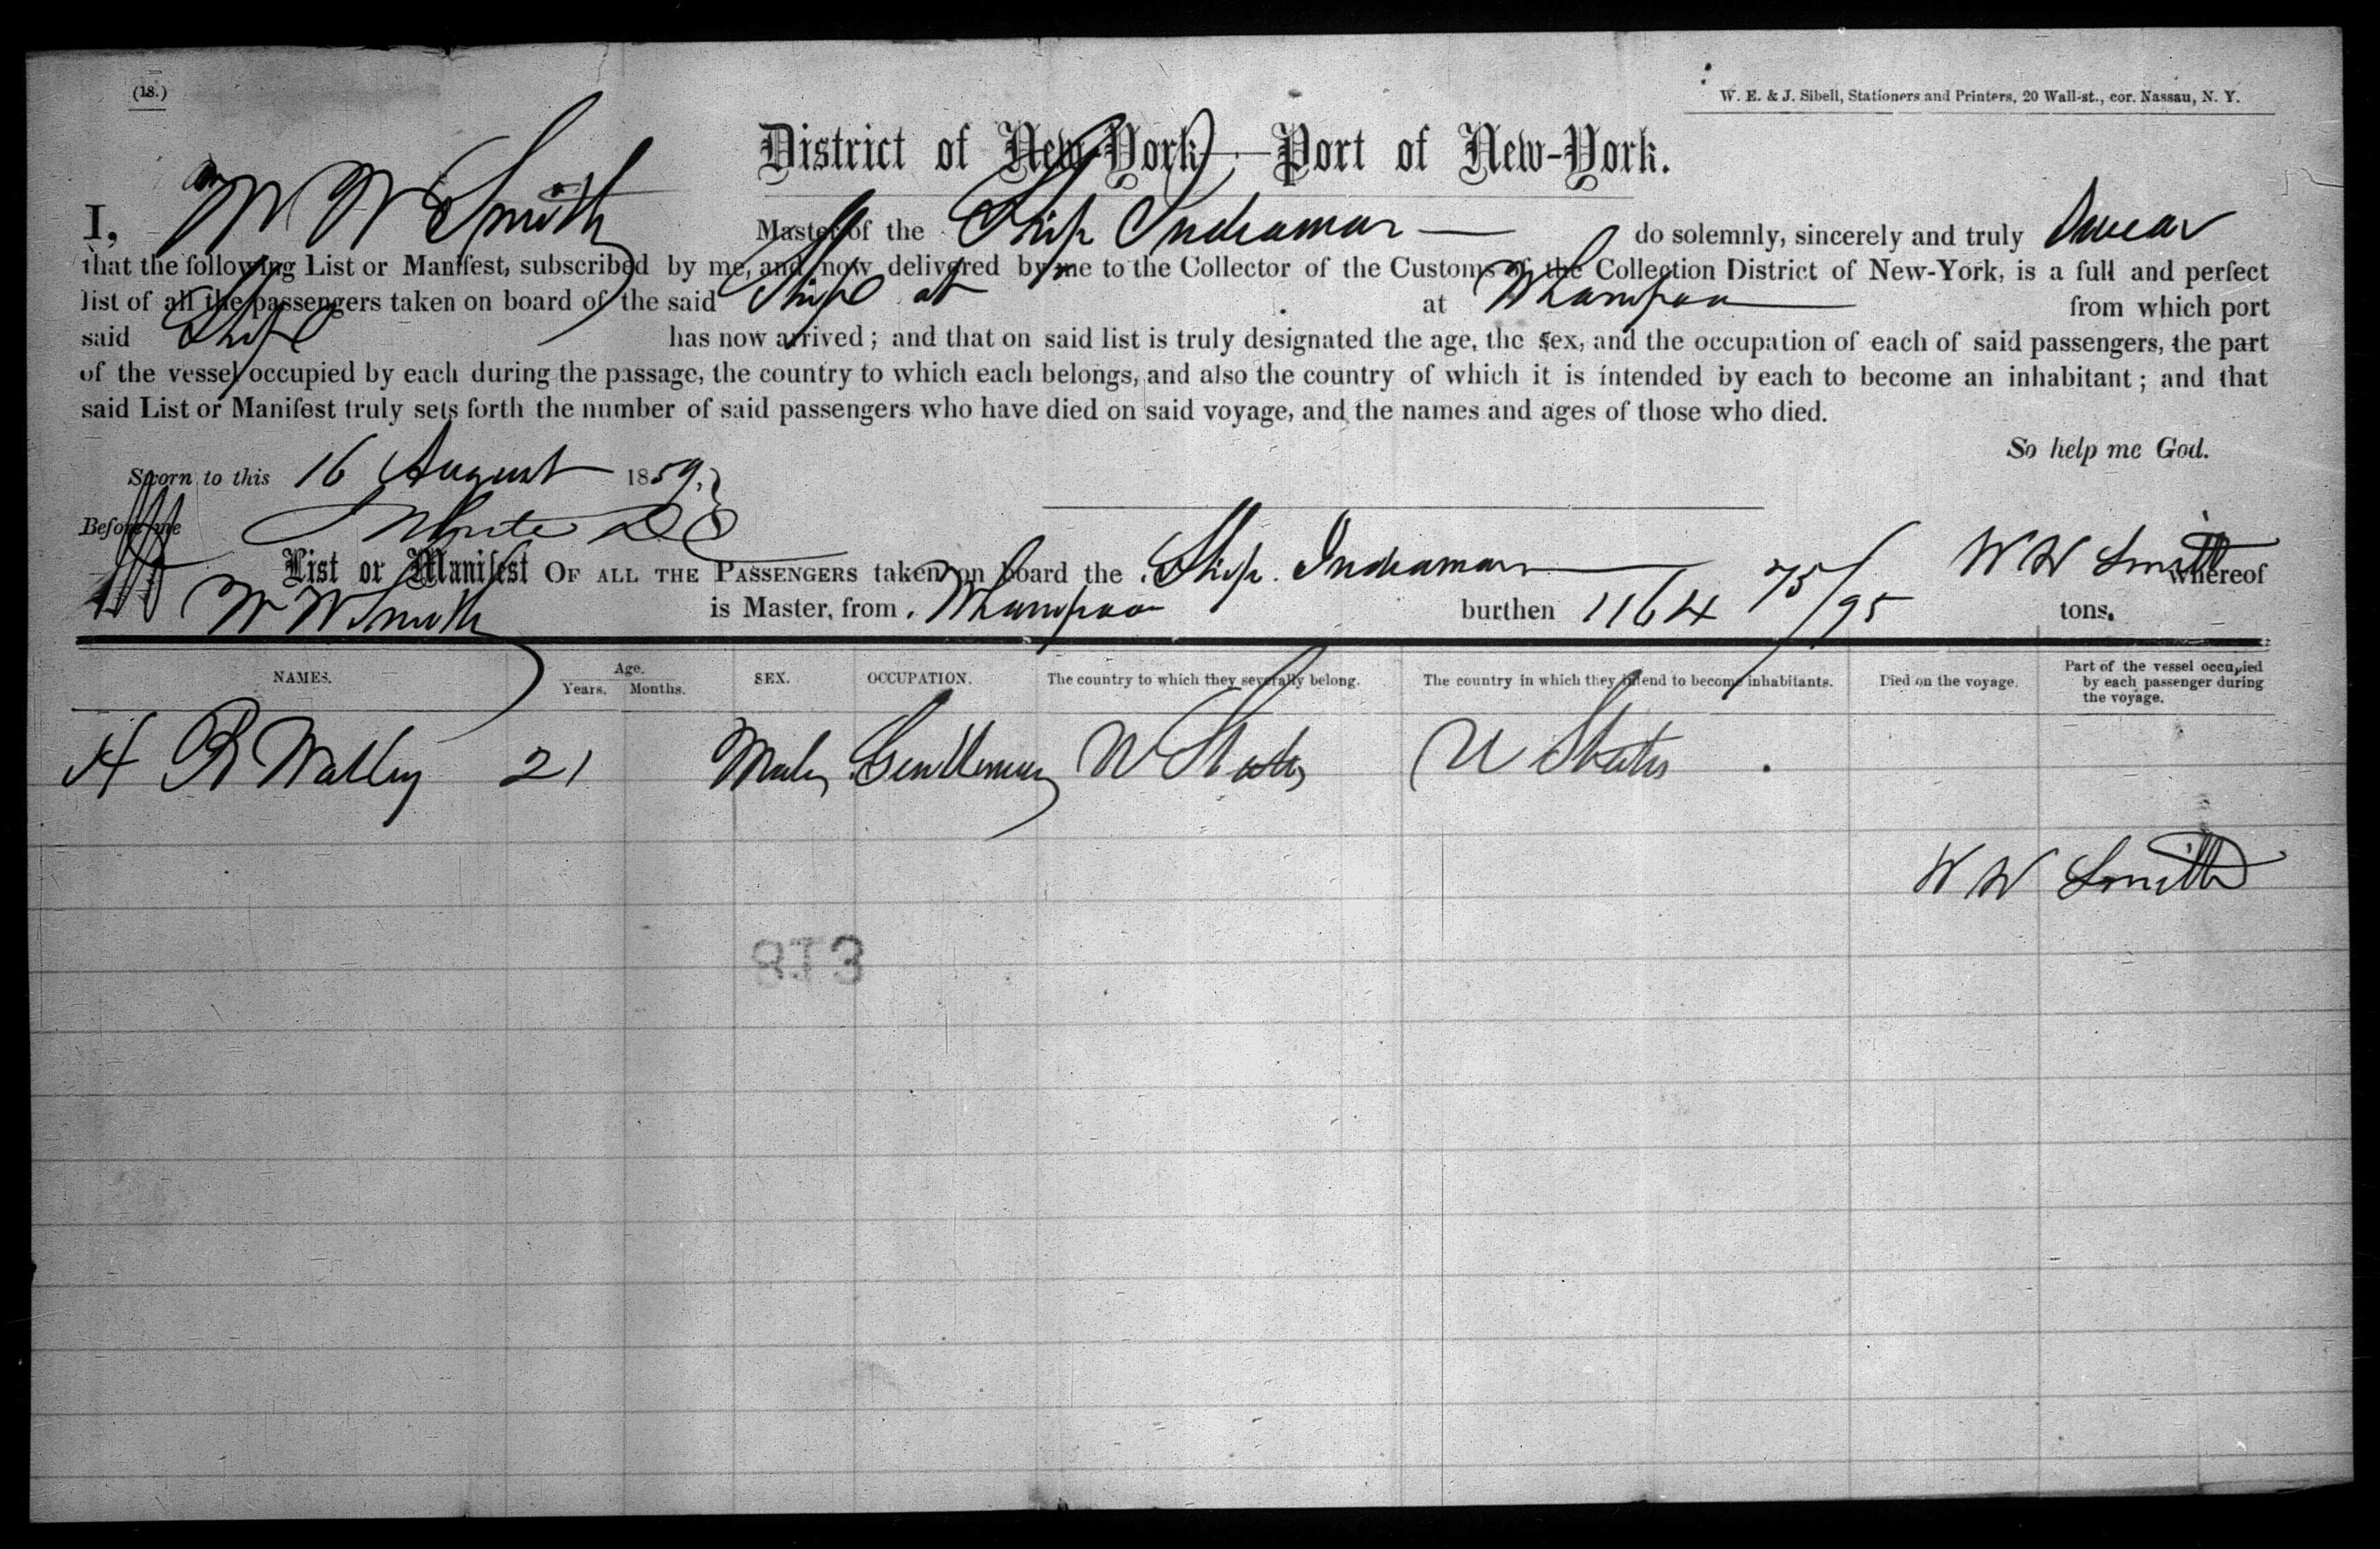 (18.)
W. E. & J. Sibell, Stationers and Printers, 20 Wall-st., cor. Nassau, N. Y.
District of New-York—Port of New-York.
I, W W Smith Master of the Ship Indiaman do solemnly, sincerely and truly Swear
that the following List or Manifest, subscribed by me, and now delivered by me to the Collector of the Customs of the Collection District of New-York, is a full and perfect
list of all the passengers taken on board of the said Ship at at Whampoa from which port
said Ship has now arrived; and that on said list is truly designated the age, the sex, and the occupation of each of said passengers, the part
of the vessel occupied by each during the passage, the country to which each belongs, and also the country of which it is intended by each to become an inhabitant; and that
said List or Manifest truly sets forth the number of said passengers who have died on said voyage, and the names and ages of those who died.
So help me God.
Sworn to this 16 August 1859,
Before me White
W W Smith
List or Manifest OF ALL THE PASSENGERS taken on board the Ship Indiaman whereof
W W Smith is Master, from Whampoa burthen 1164 75/95 tons.
NAMES. Age. Years. Months. SEX. OCCUPATION. The country to which they severally belong. The country in which they intend to become inhabitants. Died on the voyage. Part of the vessel occupied by each passenger during the voyage.
H R 21 Male Gentleman U States U States
W W Smith
813